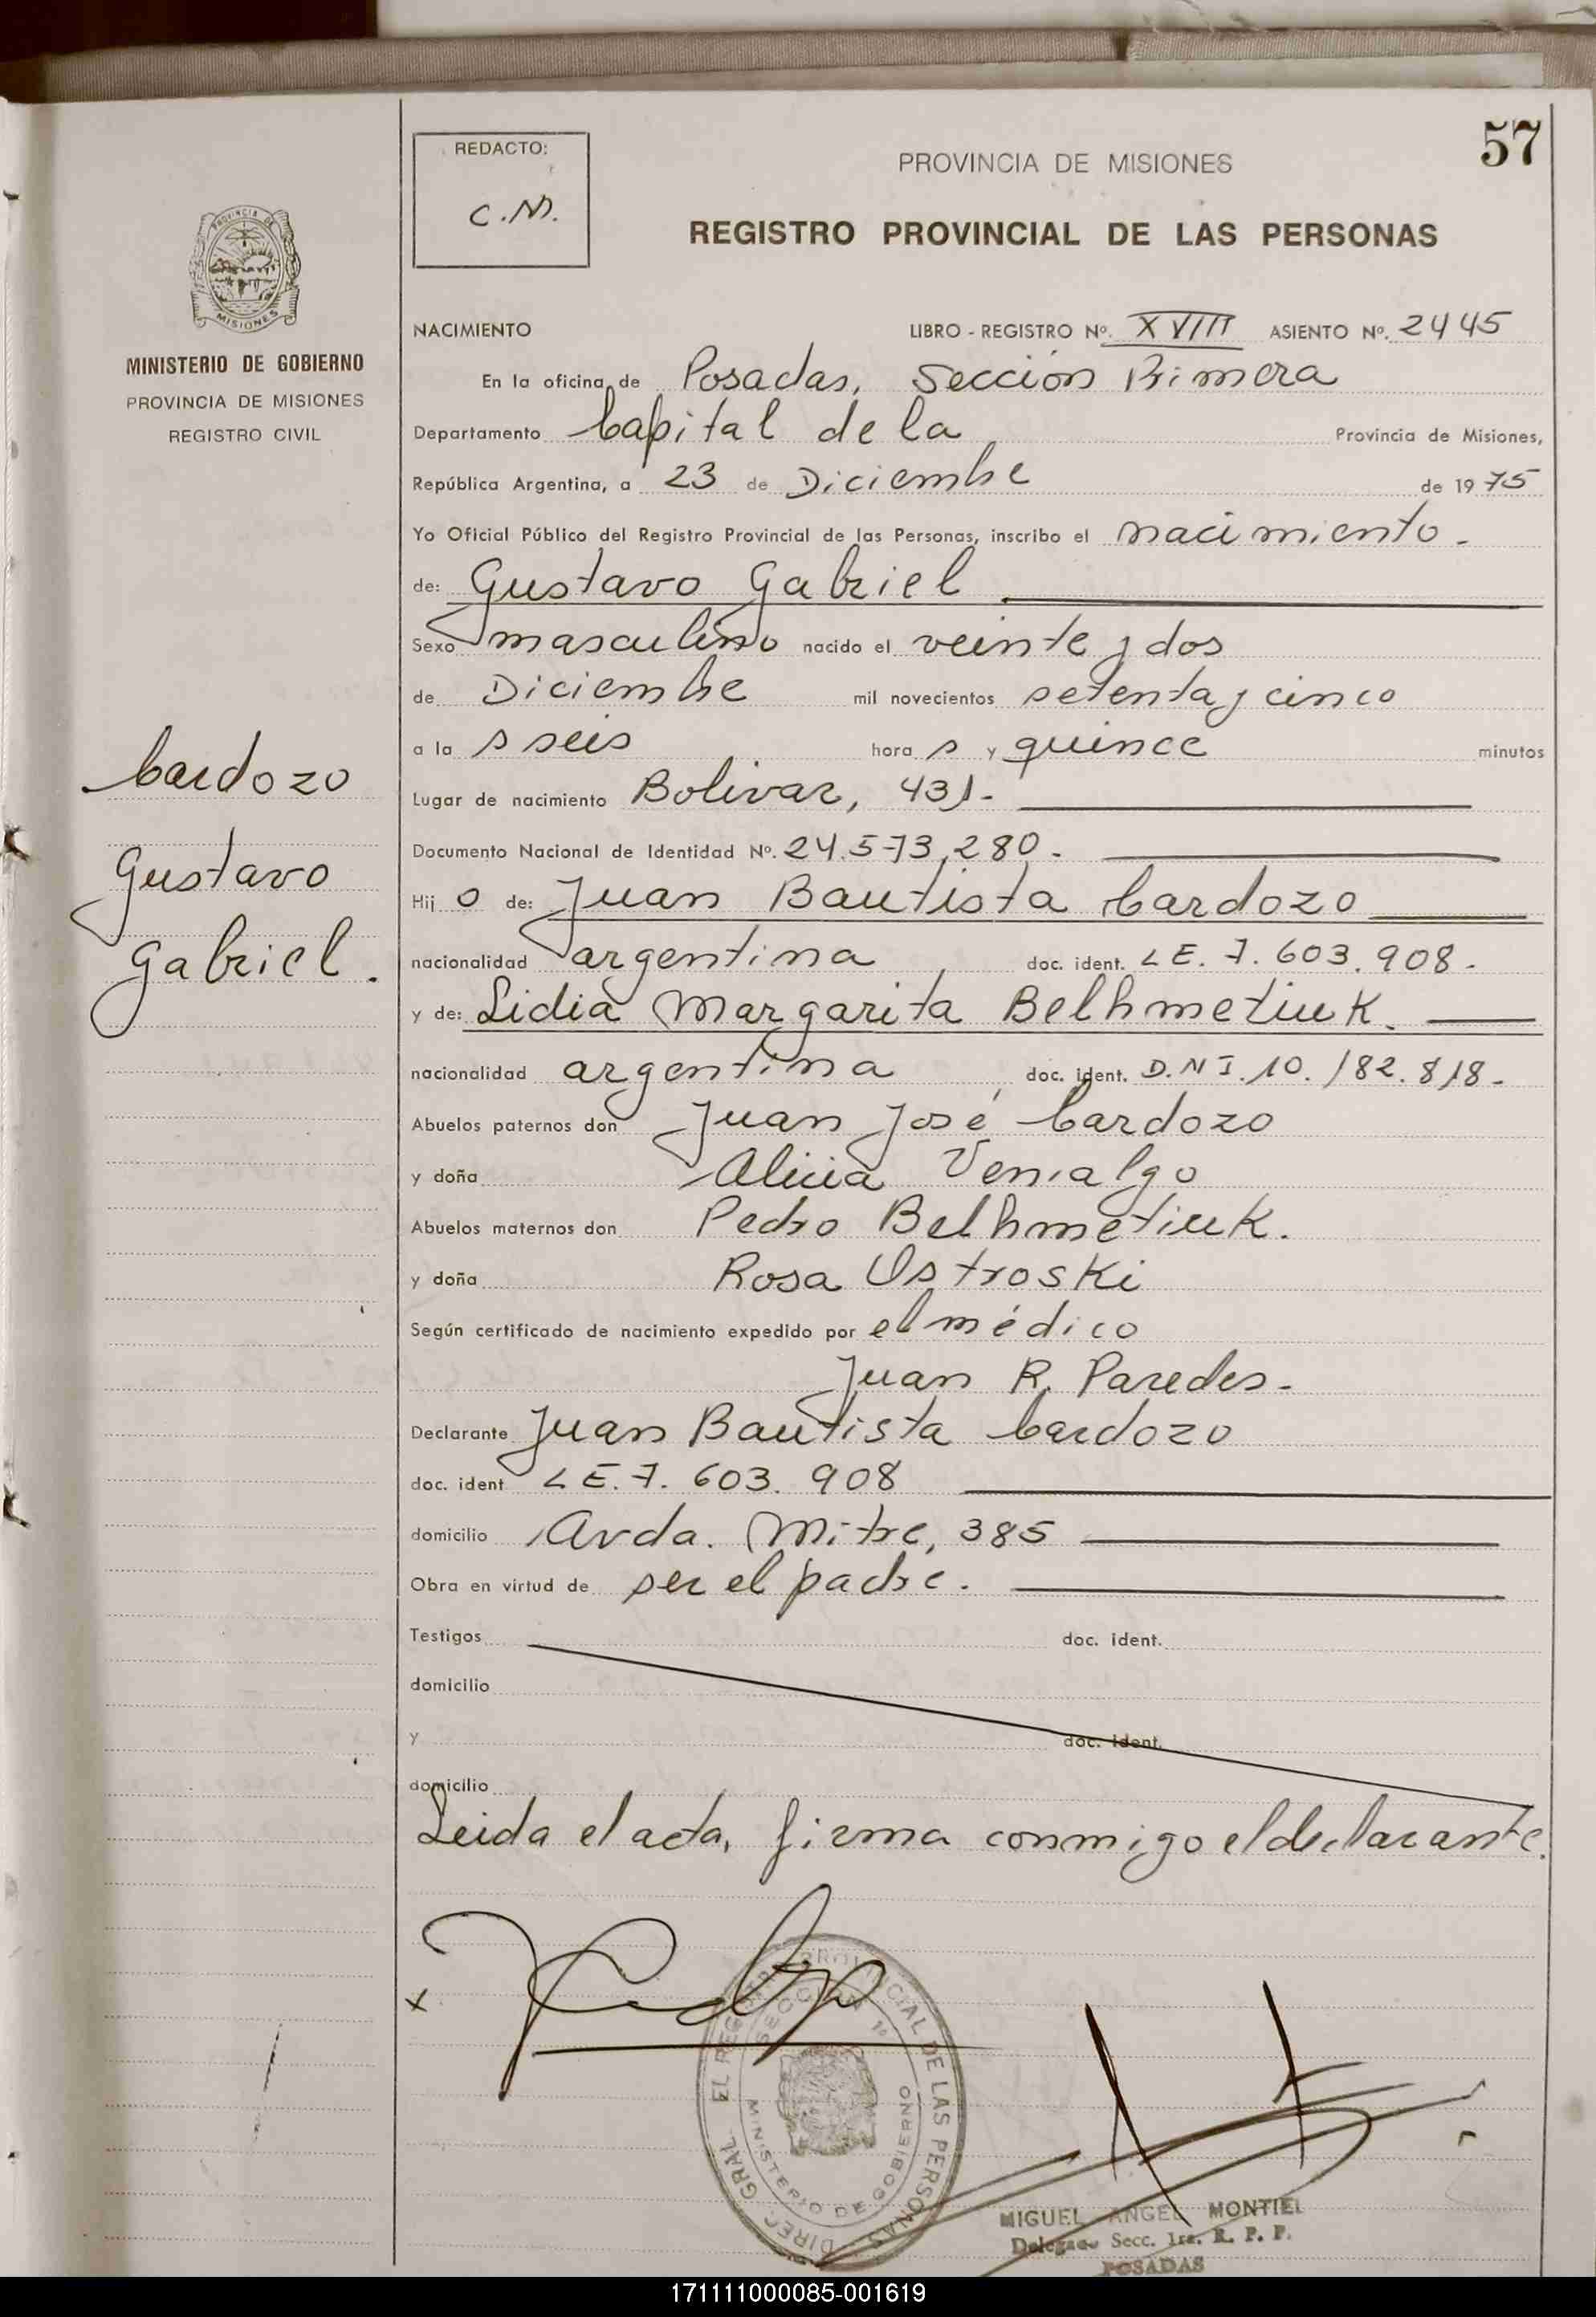 57
REDACTO:
C.M.
PROVINCIA DE MISIONES
REGISTRO PROVINCIAL DE LAS PERSONAS
MISIONES
MINISTERIO DE GOBIERNO
PROVINCIA DE MISIONES
REGISTRO CIVIL
NACIMIENTO LIBRO - REGISTRO Nº. XVIII ASIENTO Nº. 2445
En la oficina de Posadas, Sección Primera
Departamento Capital de la Provincia de Misiones,
República Argentina, a 23 de Diciembre de 1975
Yo Oficial Público del Registro Provincial de las Personas, inscribo el nacimiento.
de: Gustavo Gabriel
Sexo masculino nacido el veinte y dos
de Diciembre mil novecientos setenta y cinco
a la s seis hora s y quince minutos
Lugar de nacimiento Bolivar, 431.-
Documento Nacional de Identidad Nº. 24.573.280.-
Hij o de: Juan Bautista Cardozo
nacionalidad argentina doc. ident. LE. 7.603.908.-
y de: Lidia Margarita Belhmetiuk.
nacionalidad argentina doc. ident. D.N.I. 10.182.818.-
Abuelos paternos don Juan José Cardozo
y doña Alicia Venialgo
Abuelos maternos don Pedro Belhmetiuk.
y doña Rosa Ostroski
Según certificado de nacimiento expedido por el médico
Juan R. Paredes.-
Declarante Juan Bautista Cardozo
doc. ident. LE. 7.603.908
domicilio Avda. Mitre, 385
Obra en virtud de ser el padre.
Testigos doc. ident.
domicilio
y doc. ident.
domicilio
Leida el acta, firma conmigo el declarante.
Cardozo
Gustavo
Gabriel.
x
DIREC. GRAL. EL REGISTRO PROVINCIAL DE LAS PERSONAS
SECCION 1ª
MINISTERIO DE GOBIERNO
MIGUEL ANGEL MONTIEL
Delegado Secc. 1ra. R. P. P.
POSADAS
171111000085-001619